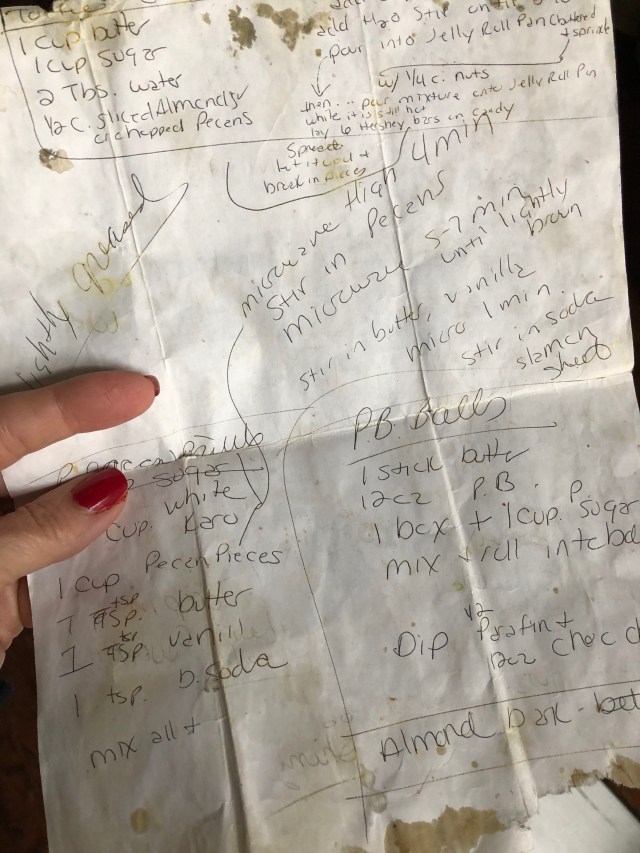 1 cup butter
1 cup sugar
2 Tbs. water
1/2 c. sliced Almonds or
chopped Pecens
add H20 stir
pour into Jelly Roll Pan buttered
+ sprinkle
w/ 1/4 c. nuts
then.. pour mixture onto Jelly Roll Pan
while it is still hot
lay 6 Hershey bars on candy
Spread
let it cool +
break in pieces
lightly greased
microwave High 4 min
Stir in Pecens
microwave 5-7 min
until lightly
brown
stir in butter, vanilla
micro 1 min.
stir in soda
sheet
sugar
white
cup. Karo
1 cup Pecen Pieces
1 tsp. butter
1 tsp. vanill
1 tsp. b. soda
mix all +
P.B. Balls
1 stick butter
12oz P.B.
1 box + 1 cup. P. sugar
mix + roll into ba
Dip 1/2 Parafin +
12oz choc
Almond bark -